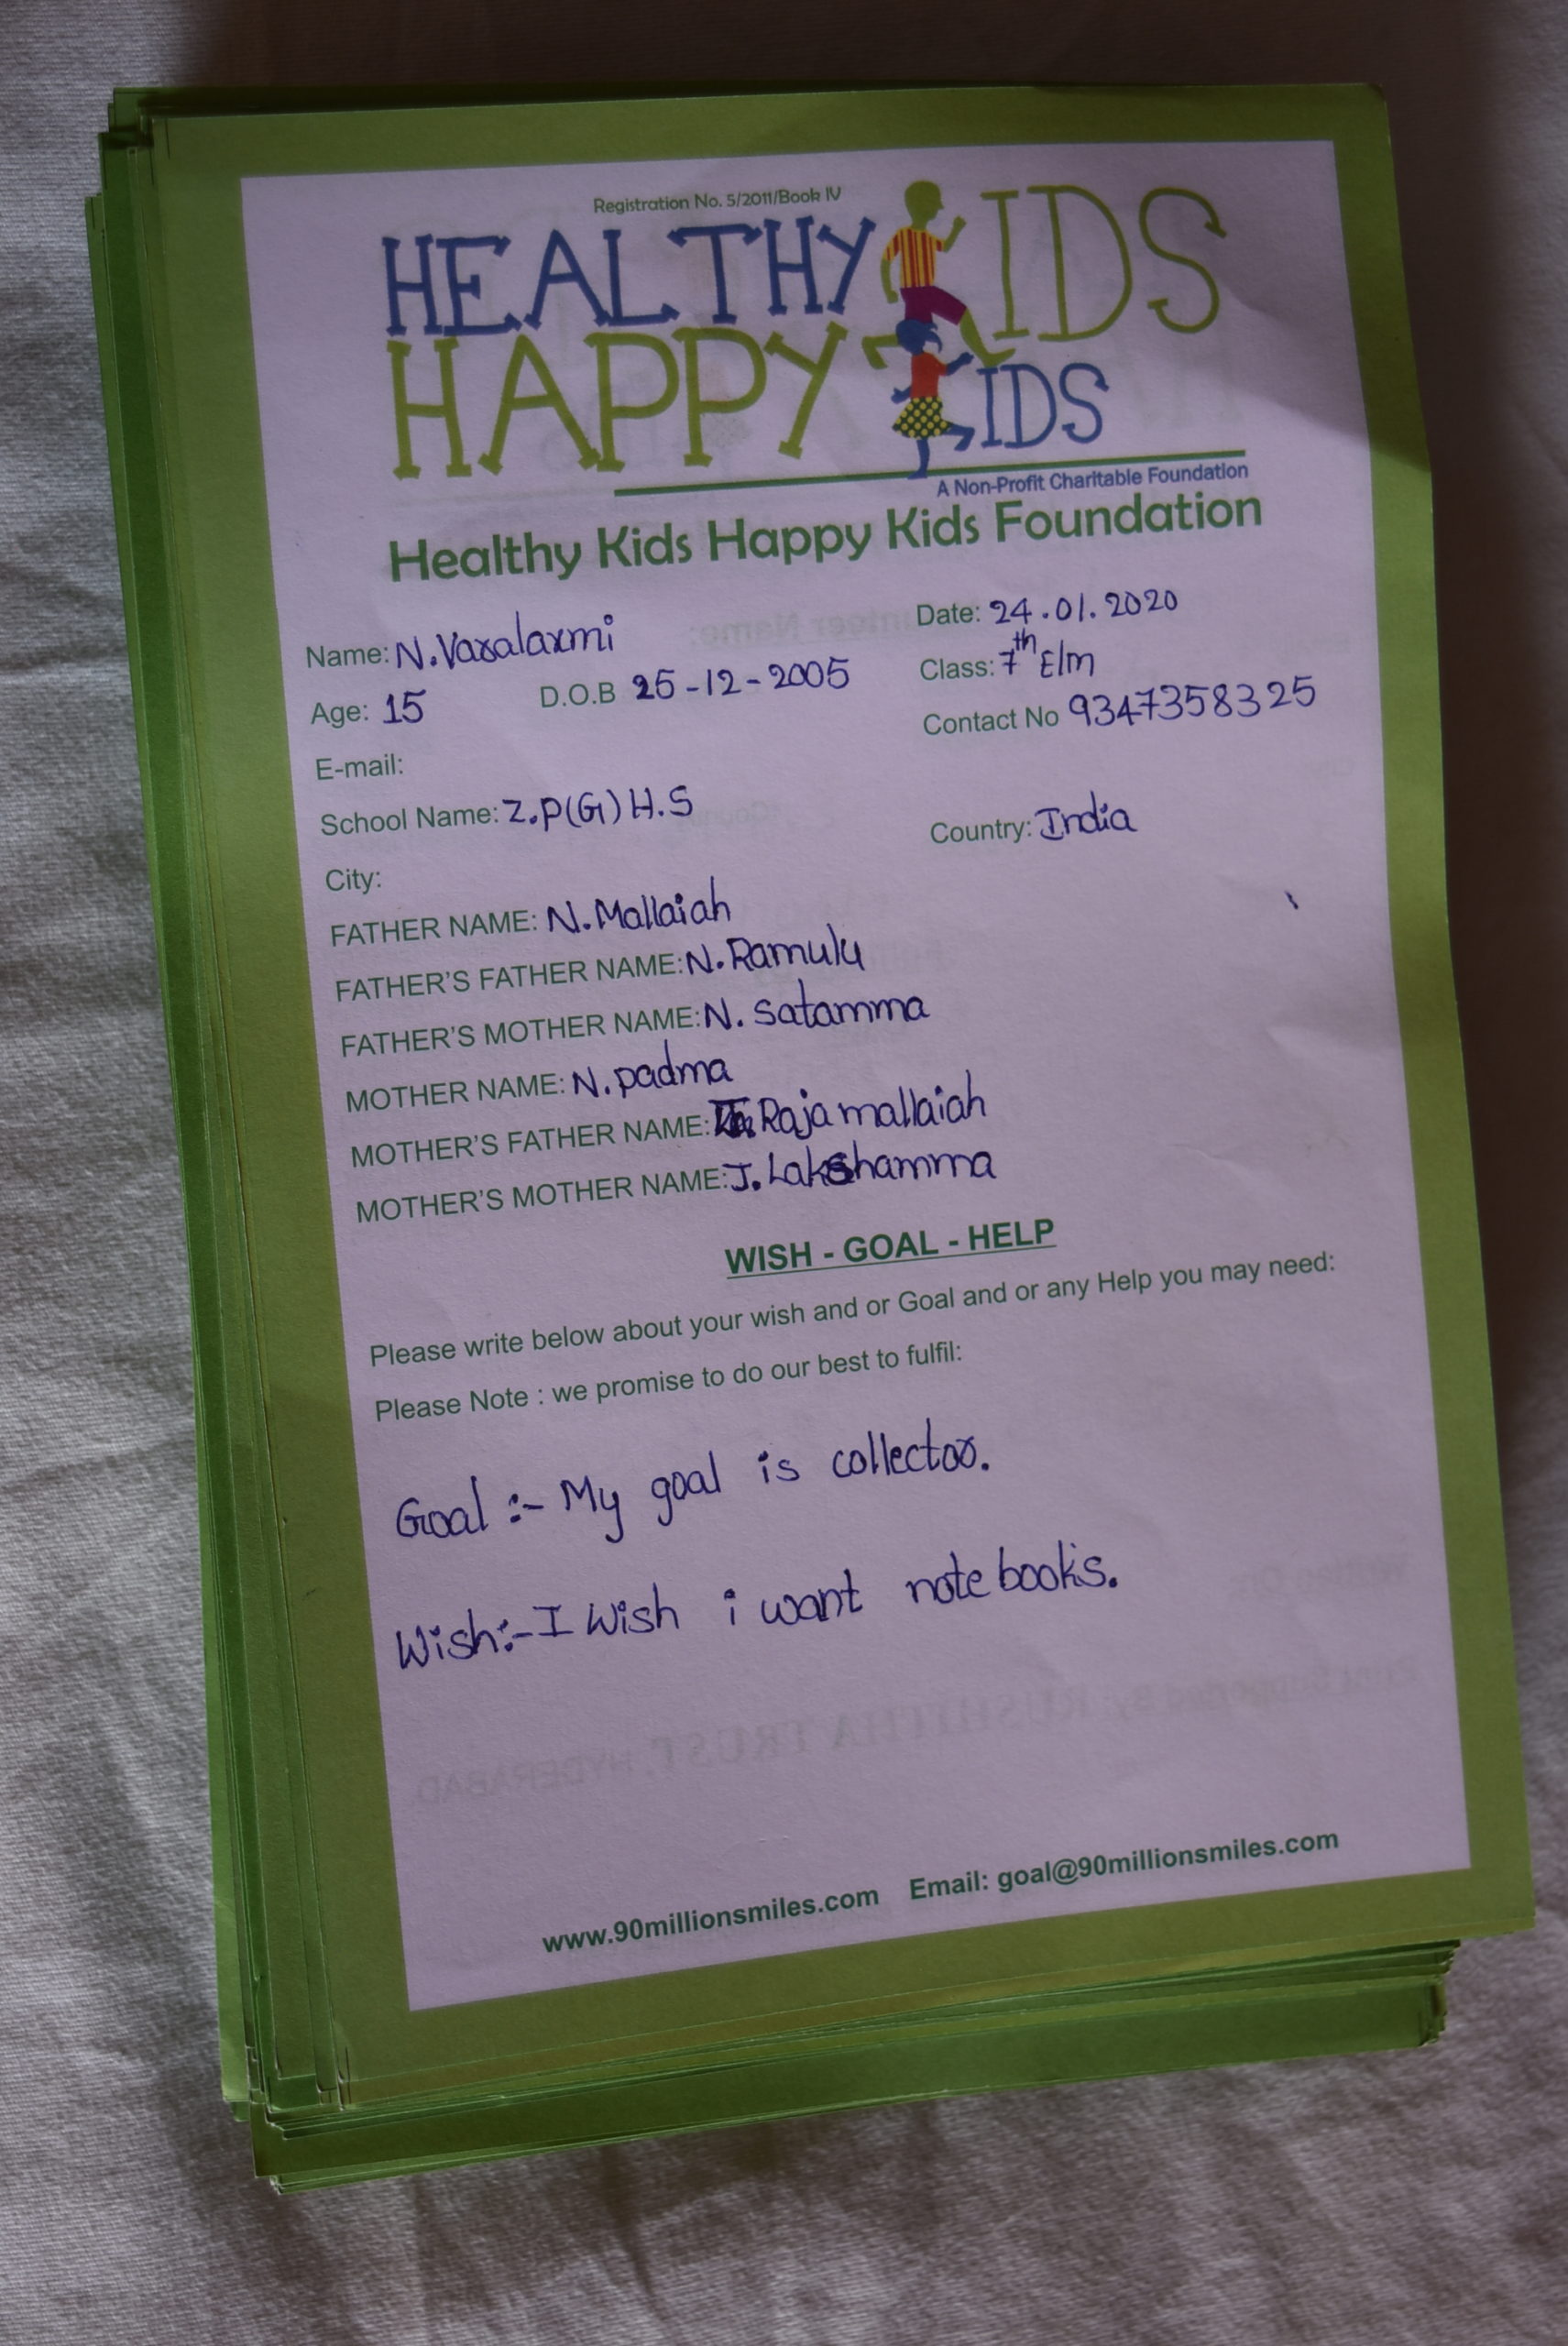 Registration No. 5/2011/Book IV
HEALTHY KIDS
HAPPY KIDS
A Non-Profit Charitable Foundation
Healthy Kids Happy Kids Foundation
Name: N. Varalaxmi
Date: 24.01.2020
Age: 15 D.O.B 25-12-2005
Class: 7th Elm
Contact No 9347358325
E-mail:
School Name: Z.P(G) H.S
Country: India
City:
FATHER NAME: N. Mallaiah
FATHER'S FATHER NAME: N. Ramulu
FATHER'S MOTHER NAME: N. Satamma
MOTHER NAME: N. padma
MOTHER'S FATHER NAME: Rajamallaiah
MOTHER'S MOTHER NAME: J. Lakshamma
WISH - GOAL - HELP
Please write below about your wish and or Goal and or any Help you may need:
Please Note : we promise to do our best to fulfil:
Goal :- My goal is collector.
Wish:- I Wish i want note books.
www.90millionsmiles.com Email: goal@90millionsmiles.com